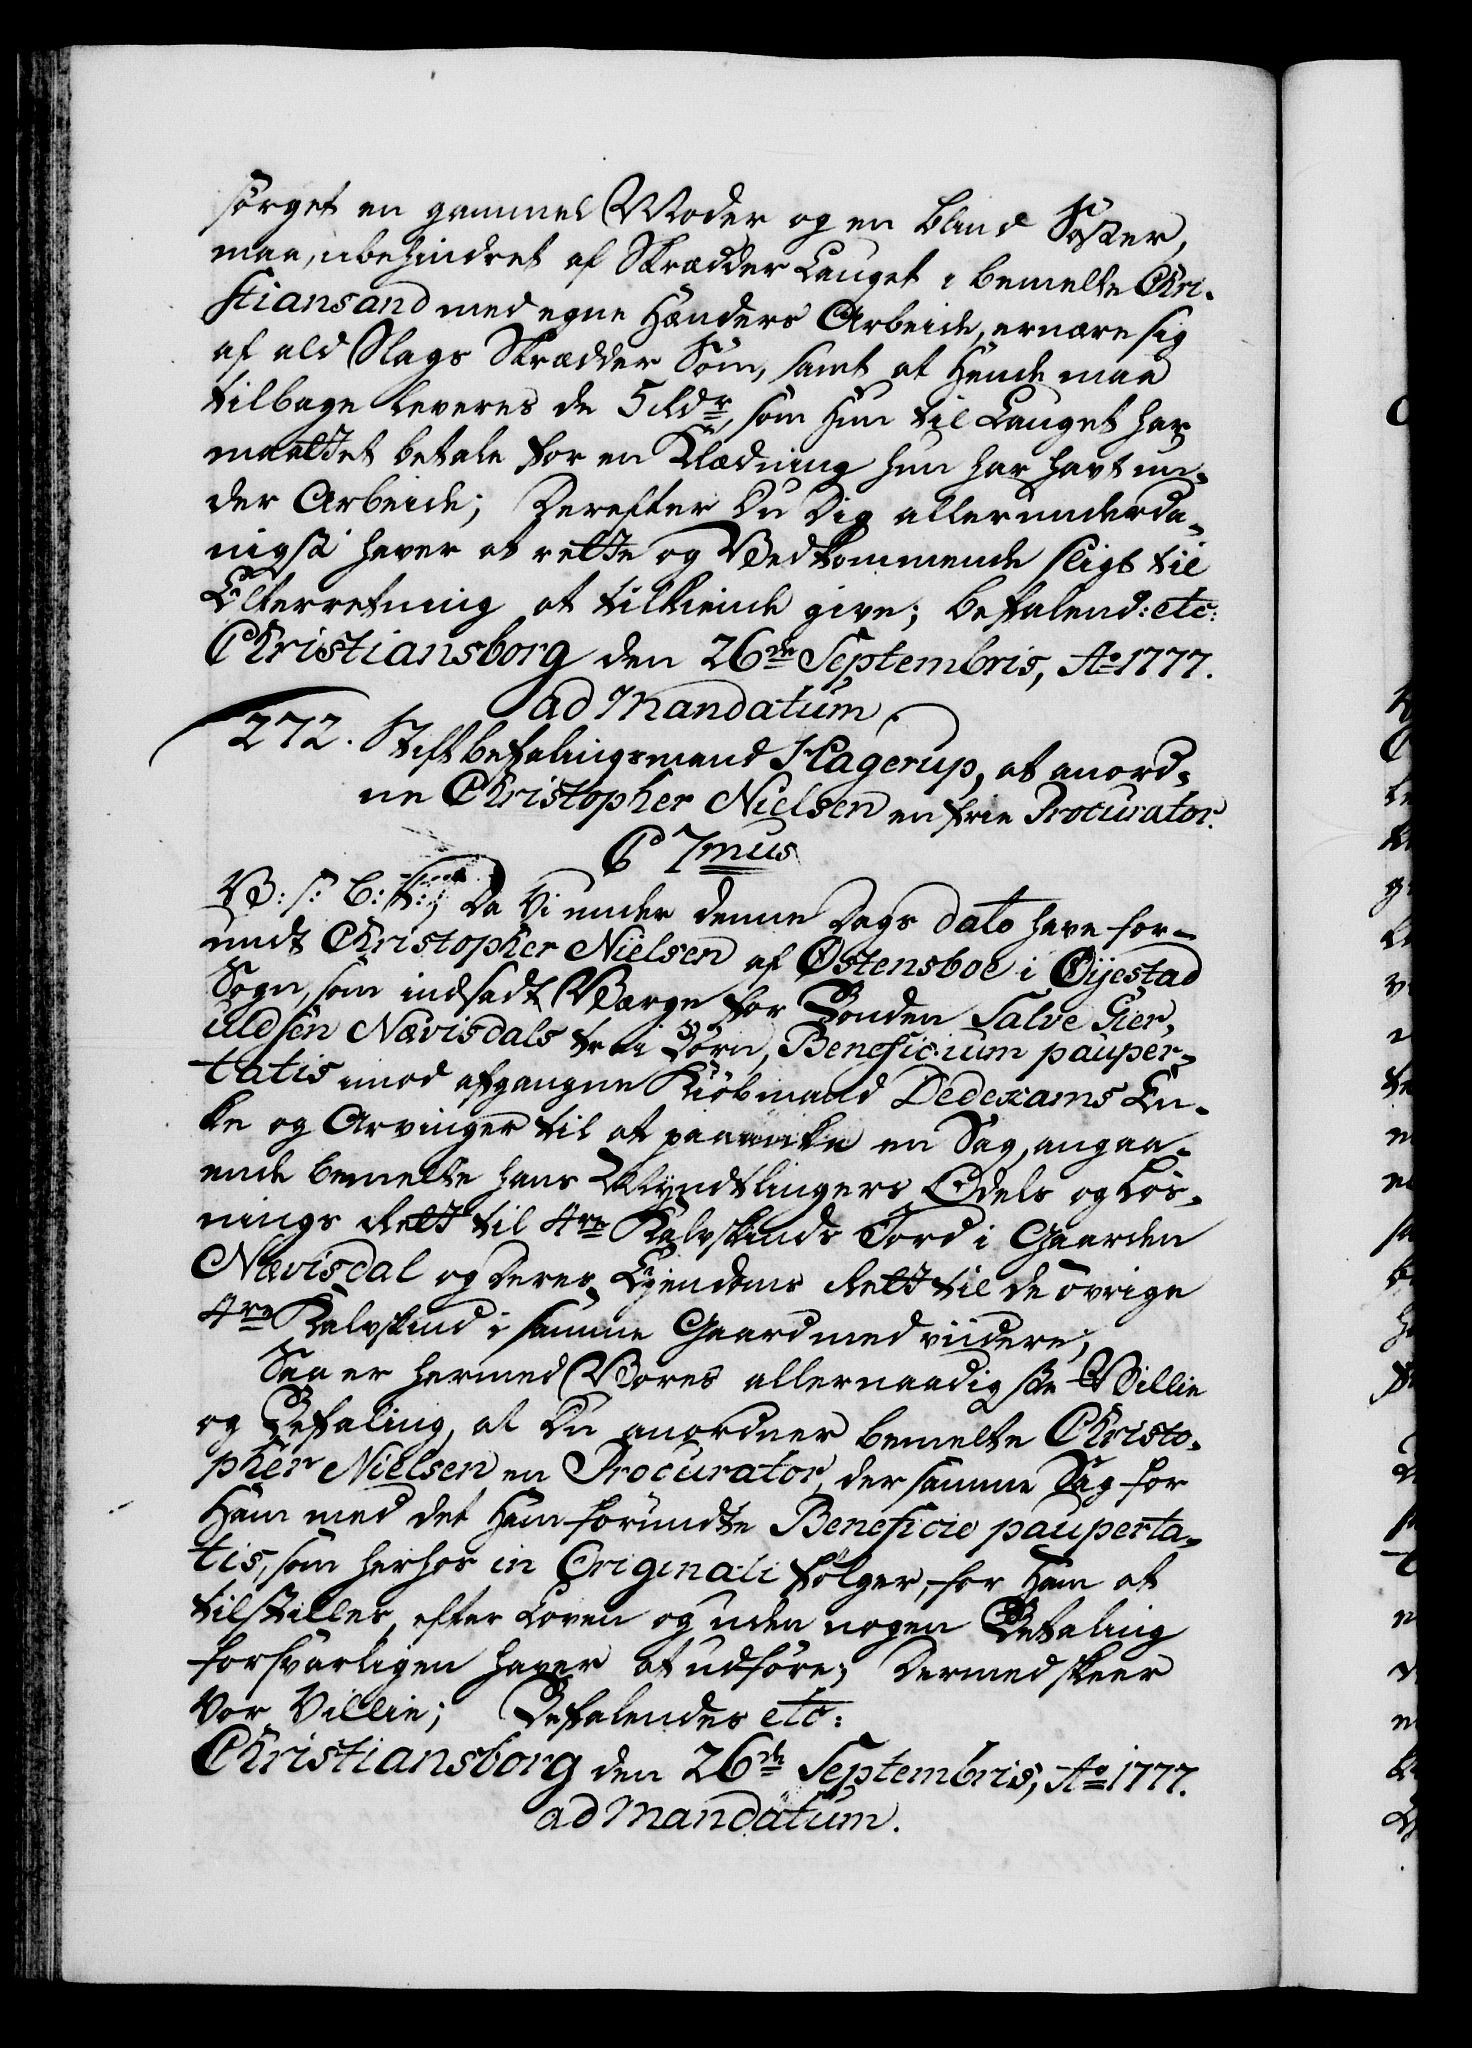 sörget en gammel Moder og en blind Söster,
maa, ubehindret af Skrædder Lauget i bemelte Chri-
stiansand med egne Hænders Arbeide, ernære sig
af ald Slags Skrædder Söm, samt at Hende maa
tilbage leveres de 5 Rdr, som Hun til Lauget har
maattet betale for en Klædning hun har havt un-
der Arbeide; Derefter Du Dig allerunderda-
nigst haver at rette og Vedkommende sligt til
Efterretning at tilkiende give; Befalend: etc:
Christiansborg den 26de Septembris, Ao 1777.
ad Mandatum.
272. Stiftbefalingsmand Hagerup, at anord-
ne Christopher Nielsen en frie Procurator.
C 7mus
V: S: B: T:, Da Vi under denne Dags dato have for-
undt Christopher Nielsen af Östensboe i Öijestad
Sogn, som indsadt Værge for Bonden Salve Gier-
uldsen Nævisdals trei Börn, Beneficium pauper-
tatis imod afgangne Kiöbmand Dedexams En-
ke og Arvinger til at paaanke en Sag, angaa-
ende bemelte hans Myndtlingers Odels og Lös-
nings Rett til 4re Kalvskinds Jord i Gaarden
Nævisdal og deres Eijendoms Rett til de övrige
4re Kalvskind i samme Gaard med viidere;
Saa er hermed Vores allernaadigste Villie
og Befaling, at Du anordner bemelte Christo-
pher Nielsen en Procurator, der samme Sag for
Ham med det Ham forundte Beneficio pauperta-
tis, som herhos in Originali fölger, for Ham at
tilstilles, efter Loven og uden nogen Betaling
forsvarligen haver at udföre; Dermed skeer
Vor Villie; Befalendes etc:
Christiansborg den 26de Septembris, Ao 1777.
ad Mandatum.